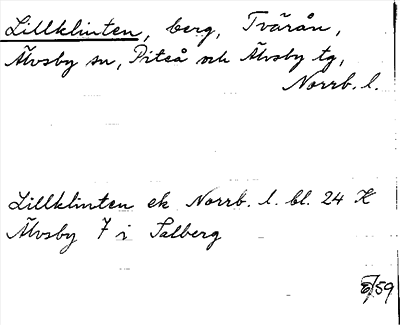 Lillklinten, berg, Tvärån,
Älvsby sn, Piteå och Älvsby tg,
Norrb. l.
Lillklinten ek Norrb. l. bl. 24 K
Älvsby 7 i Salberg
/59